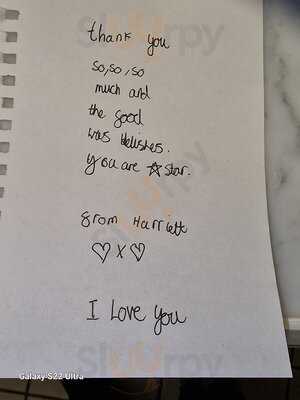 thank you
so, so, so
much and
the good
was delishes.
you are ☆ star.
from Harriett
♡ X ♡
I Love you
Galaxy S22 Ultra
Slurrpy